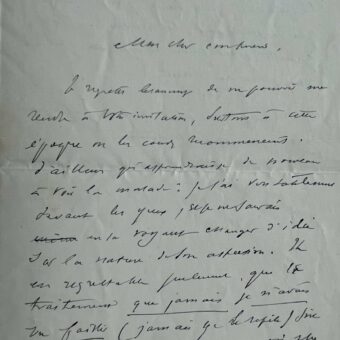 Mon cher confrère,
Je regrette beaucoup de ne pouvoir me
rendre à votre invitation, surtout à cette
époque où les cours recommencent.
D'ailleurs qu'apprendrais-je de nouveau
à voir la malade : j'ai
devant les yeux, et je ne saurais
en la voyant changer d'idée
sur la nature de son affection. Il
est regrettable seulement que le
traitement que jamais je n'avais
vu faillir (jamais je le répète)